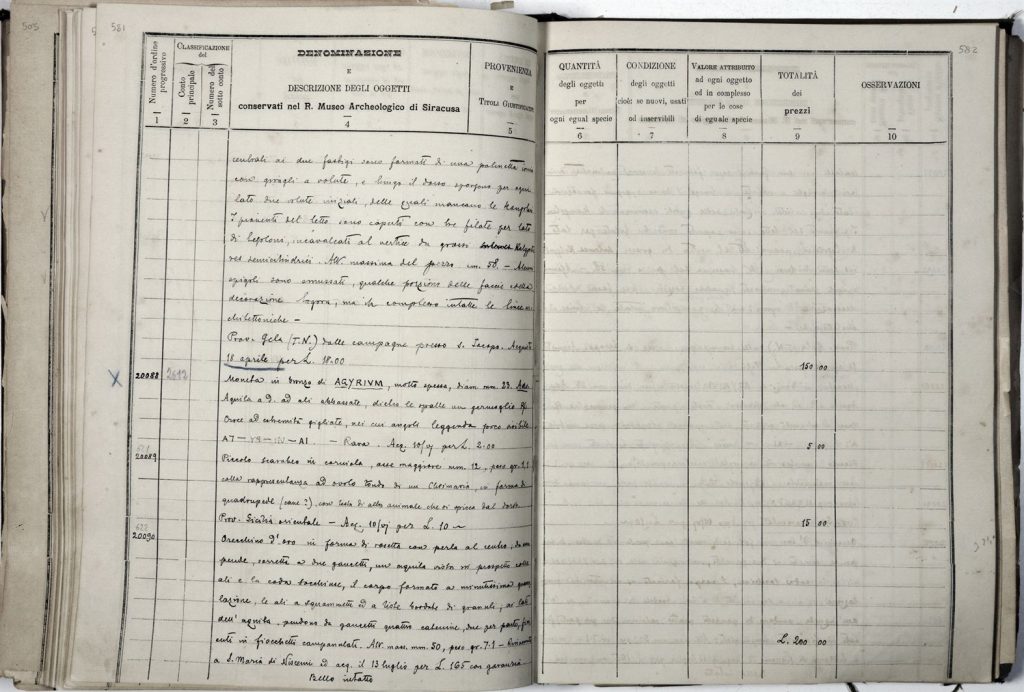 505
581
582
Numero d'ordine progressivo
CLASSIFICAZIONE del
Conto principale
Numero del sotto conto
DENOMINAZIONE
E
DESCRIZIONE DEGLI OGGETTI
conservati nel R. Museo Archeologico di Siracusa
PROVENIENZA
E
TITOLI GIUSTIFICATIVI
QUANTITÀ
degli oggetti
per
ogni egual specie
CONDIZIONE
degli oggetti
cioè: se nuovi, usati
od inservibili
VALORE ATTRIBUITO
ad ogni oggetto
od in complesso
per le cose
di eguale specie
TOTALITÀ
dei
prezzi
OSSERVAZIONI
1 2 3 4 5 6 7 8 9 10
centrali ai due fastigi sono formati di una palmetta
con giragli a volute, e lungo il dorso sporgono per ogni
lato due volute iniziali, delle quali mancano le
I pioventi del tetto sono coperti con tre filate per lato
di tegoloni, incavalcati al vertice da grossi
semicilindrici. Alt. massima del pezzo cm. 58. - Alcuni
spigoli sono smussati, qualche porzione delle faccie e della
decorazione logora, ma in complesso intatte le linee
chitettoniche -
Prov. Gela (T.N.) dalle campagne presso S. Jacopo. Acquist.
18 aprile per L. 18.00
150 00
20088 2612 Moneta in bronzo di AGYRIVM, molto spessa, diam. mm. 23.
Aquila a d. ad ali abbassate, dietro le spalle un germoglio R/.
Croce ad estremità gigliate, nei cui angoli leggenda poco visibile
- AI - Rara. Acq. 10/vj per L. 2.00
5 00
20089 Piccolo scarabeo in corniola, asse maggiore mm. 12, peso gr.
colla rappresentanza ad ovolo tondo di un Chimaira, in forma di
quadrupede (cane?), con testa di altro animale che si spicca dal dorso
Prov. Sicilia orientale - Acq. 10/vj per L. 10 -
15 00
20090 Orecchino d'oro in forma di rosetta con perla al centro, da cui
pende, sorretta a due gancetti, un aquila vista in prospetto colle
ali e la coda socchiuse, il corpo formato a minutissima
lazione, le ali a squammette ed a liste bordate di granuli, ai lati
dell'aquila, pendono da gancetti quattro catenine, due per parte,
in fiocchetti campanulati. Alt. mass. mm. 50, peso gr. 7.1 -
a S. Maria di Niscemi ed acq. il 13 luglio per L. 165 con garanzia -
Bello intatto
L. 200 00